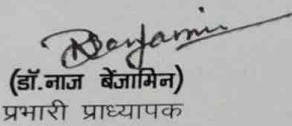 Benjamin
(डॉ.नाज बेंजामिन)
प्रभारी प्राध्यापक